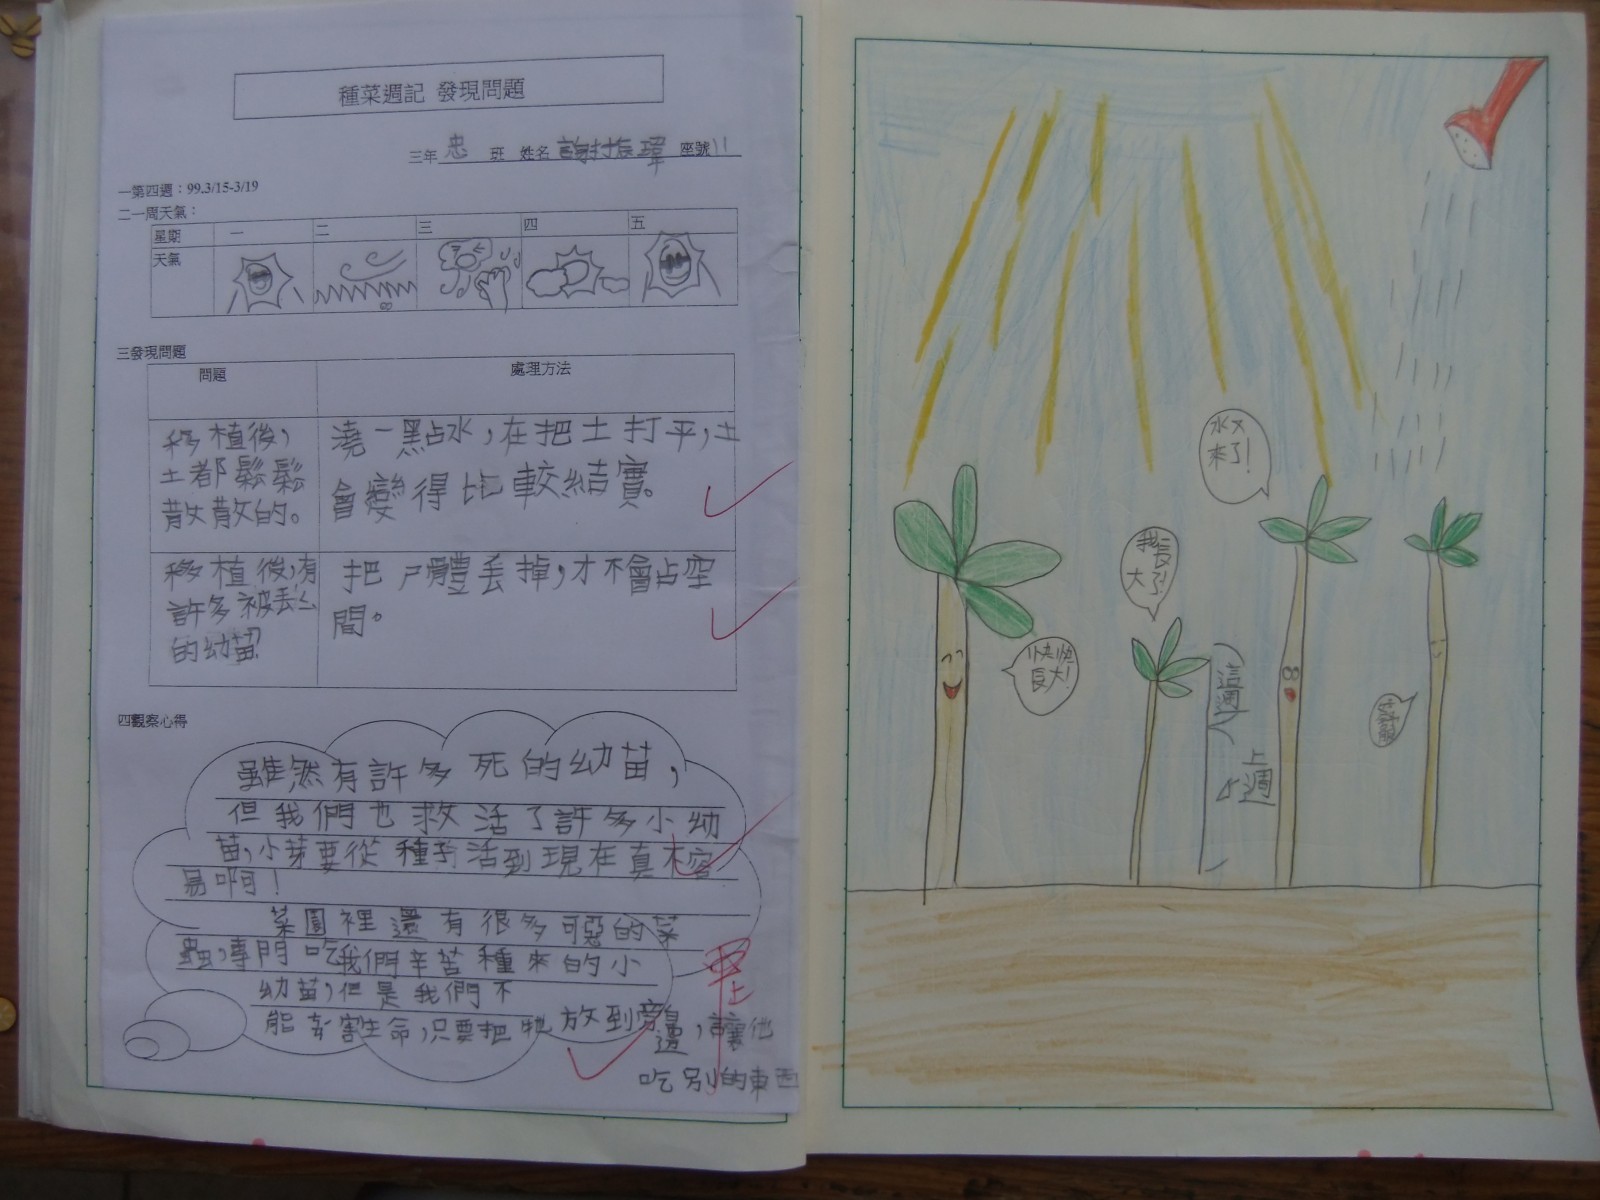 種菜週記 發現問題
三年 忠 班 姓名 謝振瑋 座號 11
一第四週：99.3/15-3/19
二一周天氣：
星期 一 二 三 四 五
天氣
三發現問題
問題 處理方法
移植後，
土都鬆鬆
散散的。
澆一點水，在把土打平，土
會變得比較結實。
移植後，有
許多被丟
的幼苗
把尸體丟掉，才不會占空
間。
四觀察心得
雖然有許多死的幼苗，
但我們也救活了許多小幼
苗，小芽要從種子活到現在真不容
易啊！
菜園裡還有很多可惡的菜
蟲，專門吃我們辛苦種來的小
幼苗，但是我們不
能害生命，只要把牠放到旁
邊，讓他
吃別的東西
甲上
水又
來了！
我長
大了！
快快
長大！
這週
上週